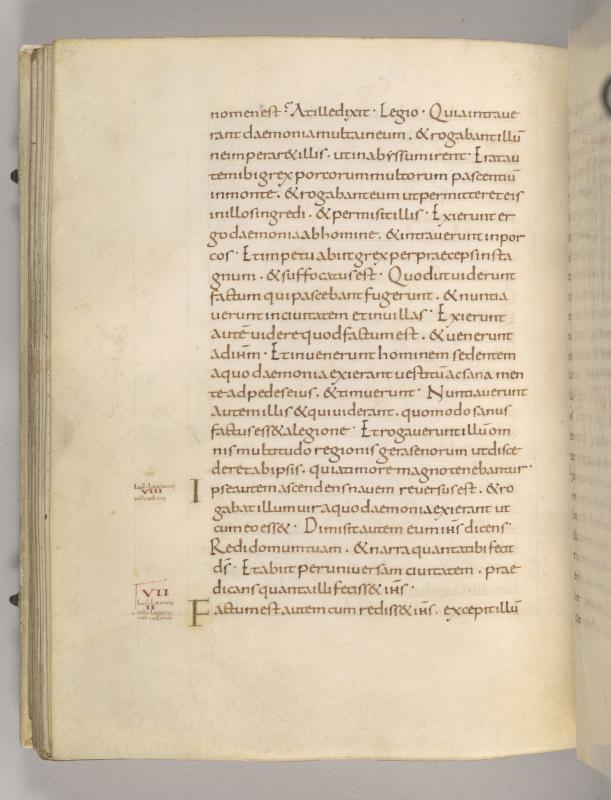 nomen est? At ille dixit · Legio · Quia intrave
rant daemonia multa in eum . & rogabant illū
ne imperar& illis . ut in abyssum irent · Erat au
tem ibi grex porcorum multorum pascentiū
in monte . & rogabant eum ut permitteret eis
in illos ingredi . & permisit illis · Exierunt er
go daemonia ab homine . & intraverunt in por
cos · Et impetu abiit grex per praeceps in sta
gnum . & suffocatus est · Quod ut viderunt
factum qui pascebant fugerunt . & nuntia
verunt in civitatem et in villas · Exierunt
autē videre quod factum est . & venerunt
ad ih̄m · Et invenerunt hominem sedentem
a quo daemonia exierant vestitū ac sana men
te ad pedes eius . & timuerunt · Nuntiaverunt
autem illis & qui viderant . quomodo sanus
factus ess& a legione · Et rogaverunt illū om
nis multitudo regionis gerasenorum ut disce
deret ab ipsis . quia timore magno tenebantur ·
VIII
Ipse autem ascendens navem reversus est . & ro
gabat illum vir a quo daemonia exierant ut
cum eo ess& · Dimisit autem eum ih̄s dicens ·
Redi domum tuam . & narra quanta tibi fecit
d̄s · Et abiit per universam civitatem . prae
dicans quanta illi feciss& ih̄s ·
VII
II
Factum est autem cum rediss& ih̄s . excepit illū